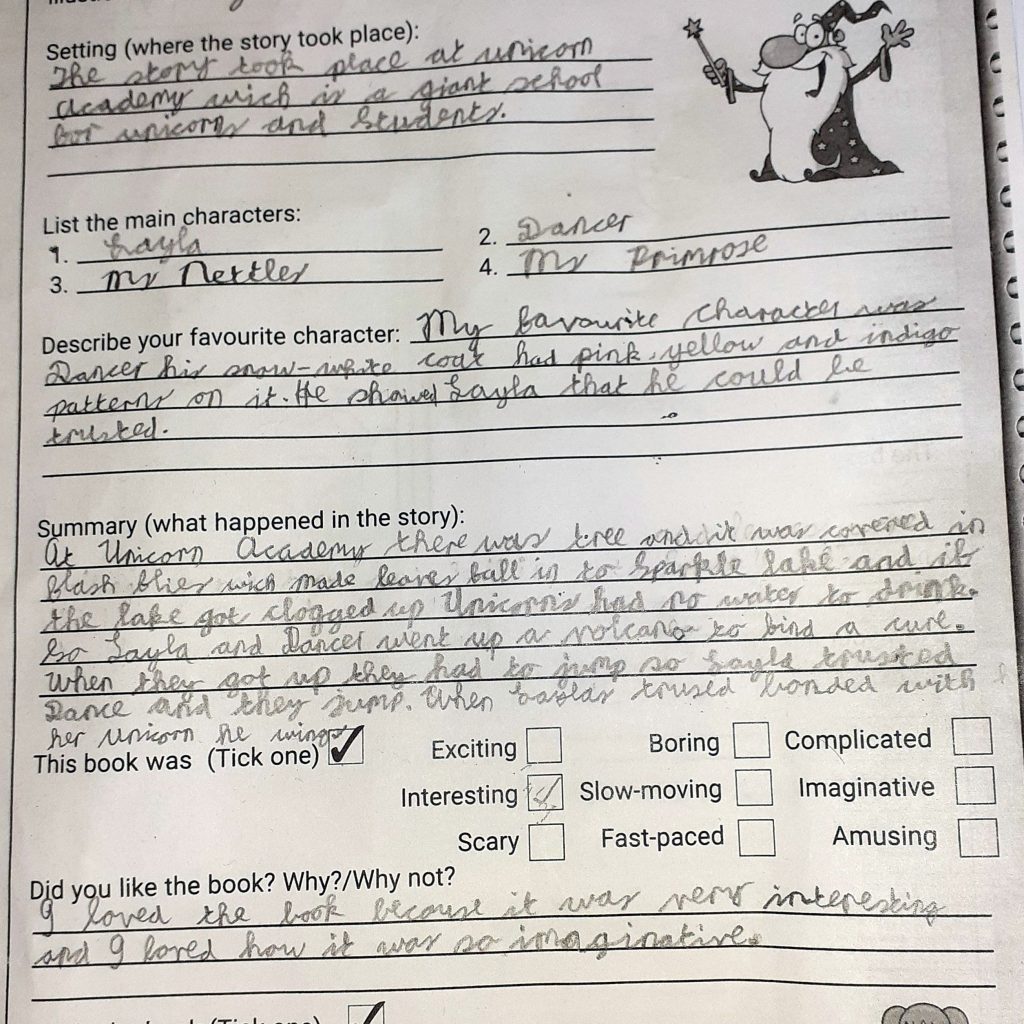 Setting (where the story took place):
The story took place at unicorn
academy wich is a giant school
for unicorns and students.
List the main characters:
1. Layla
2. Dancer
3. Mr Nettles
4. Ms Primrose
Describe your favourite character: My favourite character was
Dancer his snow-white coat had pink, yellow and indigo
patterns on it. He showed Layla that he could be
trusted.
Summary (what happened in the story):
At Unicorn Academy there was tree and it was covered in
flies wich made leaves fall in to Sparkle lake and if
the lake got clogged up Unicorn's had no water to drink.
So Layla and Dancer went up a volcano to find a cure.
When they got up they had to jump so Layla trusted
Dance and they jump. When trused bonded with
her unicorn he wings
This book was (Tick one) ✓
Exciting
Boring
Complicated
Interesting ✓
Slow-moving
Imaginative
Scary
Fast-paced
Amusing
Did you like the book? Why?/Why not?
I loved the book because it was very interesting
and I loved how it was so imaginative.
(Tick one) ✓